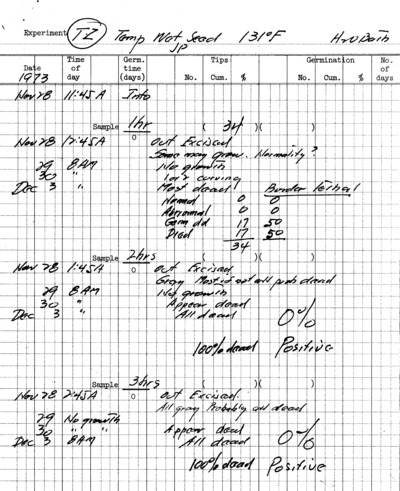 Experiment TZ Temp Wet Seed 131°F H2O Bath
JP
Date Time of day Germ. time (days) Tips No. Cum. % Germination No. Cum. % No. of days
1973
Nov 28 11:45 A Into
Sample 1hr ( 34 )( )
Nov 28 12:45 A 0 out Excised
Some may grow. Normality?
29 8 AM No growth
30 " curving
Dec 3 " Most dead Border Lethal
Normal 0 0
Abnormal 0 0
Germ dd 17 50
Died 17 50
34
Sample 2hrs ( )( )
Nov 28 1:45 A 0 out Excised
Gray Most if not all prob dead
29 8 AM No growth
30 " Appear dead
Dec 3 " All dead 0%
100% dead Positive
Sample 3hrs ( )( )
Nov 28 2:45 A 0 out Excised
All gray Probably all dead
29 No growth
30 " " Appear dead
Dec 3 8 AM All dead 0%
100% dead Positive